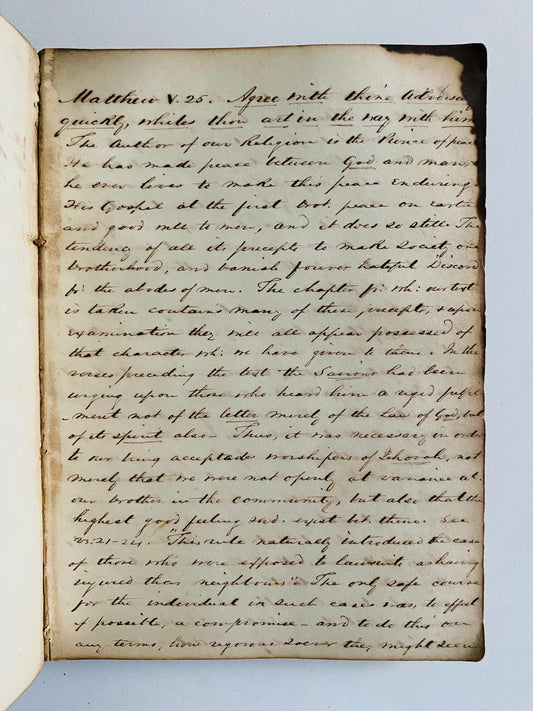 Matthew V. 25. Agree with thine Advers
quickly, whiles thou art in the way with him
The Author of our Religion is the Prince of peac
He has made peace between God and man, &
he ever lives to make this peace Enduring.
His Gospel at the first bro't peace on Earth
and good will to men, and it does so still. The
tendency of all its precepts to make Society one
brotherhood, and banish forever hateful Discord
fr: the abodes of men. The chapter fr: wh: our text
is taken contains many of these precepts, & upon
Examination they will all appear possessed of
that character wh: we have given to them. In the
verses preceding the text the Saviour had been
urging upon those who heard him a rigid fulfil
-ment not of the letter merely of the Law of God, but
of its spirit also - Thus, it was necessary in order
to our being acceptable worshipers of Jehovah, not
merely that we were not openly at variance wt.
our brother in the community, but also that the
highest good feeling shd. exist bet. them. See
vs. 21-24. "This rule naturally introduced the case
of those who were exposed to lawsuits as having
injured their neighbours". The only safe course
for the individual in such cases was, to effect
if possible, a compromise - and to do this on
any terms, how rigorous soever they might seem